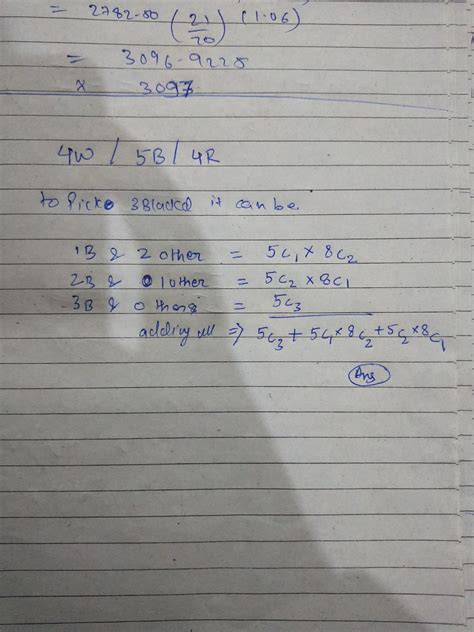 = 2782.50 (21/20) (1.06)
= 3096.9225
x 3097
4W / 5B / 4R
to Pick 3 it can be
1B & 2 other = 5C₁ × 8C₂
2B & 1 other = 5C₂ × 8C₁
3B & 0 = 5C₃
adding all ⇒ 5C₃ + 5C₁ × 8C₂ + 5C₂ × 8C₁
Ans